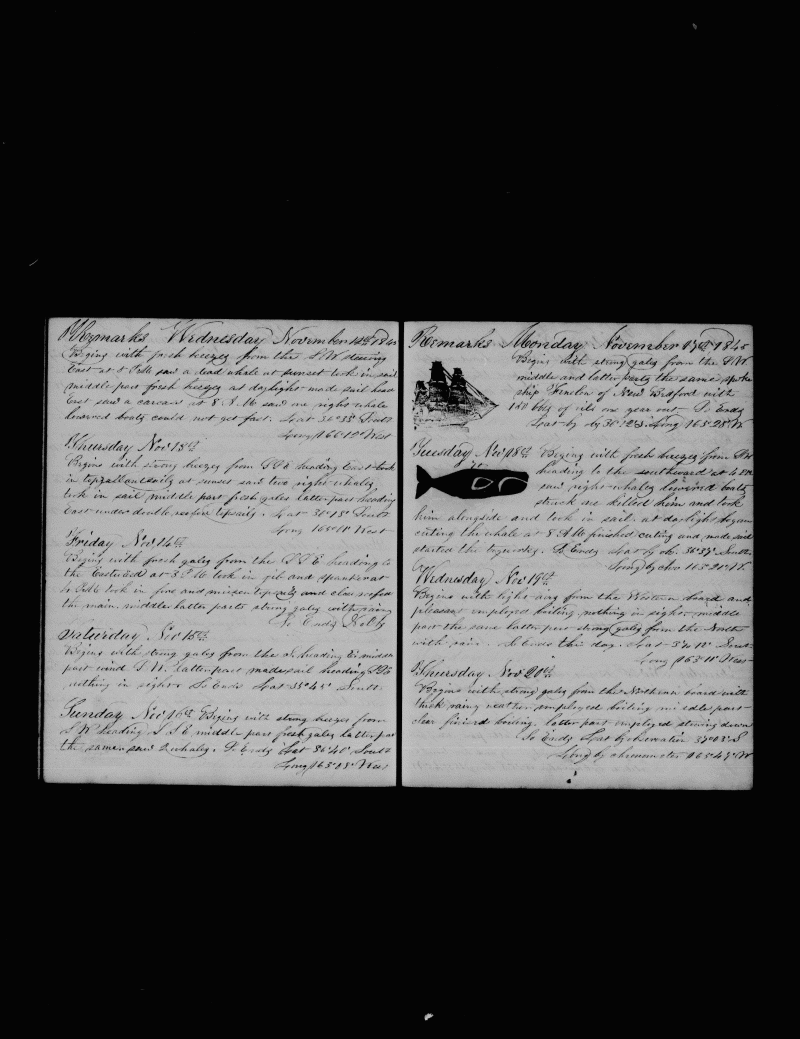 Remarks Wednesday November 12th 1845
Begins with fresh breezes from the S.W. steering
East at 5 P.M. saw a dead whale at sunset took in sail
middle part fresh breezes at daylight made sail
East saw a carcass at 8 A.M. saw one right whale
lowered boats could not get fast. Lat 35° South
Long 166°12' West
Thursday Nov 13th
Begins with strong breezes from heading East took
in topgallantsails at sunset saw two right whales
took in sail middle part fresh gales latter part heading
East under double reefed topsails. Lat South
Long 165° West
Friday Nov 14th
Begins with fresh gales from the S S E heading to
the Eastward at 3 P.M. took in jib and spanker at
P.M. took in fore and mizen topsails and close reefed
the main. middle latter parts strong gales with rain
So Ends
Saturday Nov 15th
Begins with strong gales from the S. heading E. middle
part wind S.W. latter part made sail heading
nothing in sight. So Ends Lat 35°45' South
Sunday Nov 16th Begins with strong breezes from
S.W. heading S.S.E. middle part fresh gales latter part
the same saw 2 whales. So Ends Lat 36°40' South
Long 163° West
Remarks Monday November 17th 1845
Begins with strong gales from the S.W.
middle and latter parts the same spoke
ship of New Bedford with
bbls of oil one year out So Ends
Lat by 36° S. Long 163°28' W
Tuesday Nov 18th Begins with fresh breezes from
heading to the southward at 4 P.M.
saw right whales lowered boats
struck one killed him and took
him alongside and took in sail. at daylight began
cuting the whale at 8 A.M. finished cuting and made sail
started the tryworks. So Ends Lat by ob. 36° South
Long by chro 163°21' W.
Wednesday Nov 19th
Begins with light airs from the Western board and
pleasant employed boiling. nothing in sight middle
part the same latter part strong gales from the North
with rain. So Ends this day. Lat 37° South
Long 163° West
Thursday Nov 20th
Begins with strong gales from the Northern board with
thick rainy weather employed boiling middle part
clear finised boiling. latter part employed stowing down
So Ends Lat by observation 37°03' S
Long by chronometer 163°47' W